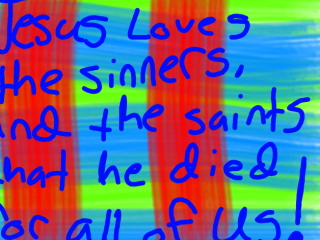 Jesus Loves
the sinners,
and the saints
that he died
for all of us!